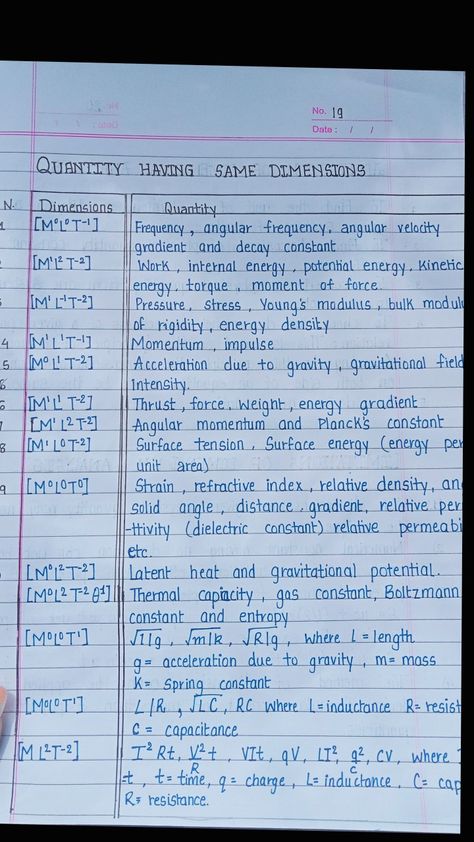 No. 19
Date : / /
QUANTITY HAVING SAME DIMENSIONS
N. Dimensions Quantity
1 [M⁰L⁰T⁻¹] Frequency, angular frequency, angular velocity
gradient and decay constant
[M¹L²T⁻²] Work, internal energy, potential energy, Kinetic
energy, torque, moment of force.
[M¹L⁻¹T⁻²] Pressure, stress, Young's modulus, bulk modul
of rigidity, energy density
4 [M¹L¹T⁻¹] Momentum, impulse
5 [M⁰L¹T⁻²] Acceleration due to gravity, gravitational field
6 Intensity.
6 [M¹L¹T⁻²] Thrust, force, weight, energy gradient
[M¹L²T⁻²] Angular momentum and Planck's constant
8 [M¹L⁰T⁻²] Surface tension, Surface energy (energy per
unit area)
9 [M⁰L⁰T⁰] Strain, refractive index, relative density, an
solid angle, distance gradient, relative per
-ttivity (dielectric constant) relative permeabi
etc.
[M⁰L²T⁻²] Latent heat and gravitational potential.
[M⁰L²T⁻²θ¹] Thermal capacity, gas constant, Boltzmann
constant and entropy
[M⁰L⁰T¹] √l/g, √m/k, √R/g, where L = length
g = acceleration due to gravity, m = mass
K = spring constant
[M⁰L⁰T¹] L/R, √LC, RC where L = inductance R = resist
C = capacitance
[ML²T⁻²] I²Rt, V²/R t, VIt, qV, LI², q²/C, CV, where
t, t = time, q = charge, L = inductance, C = cap
R = resistance.